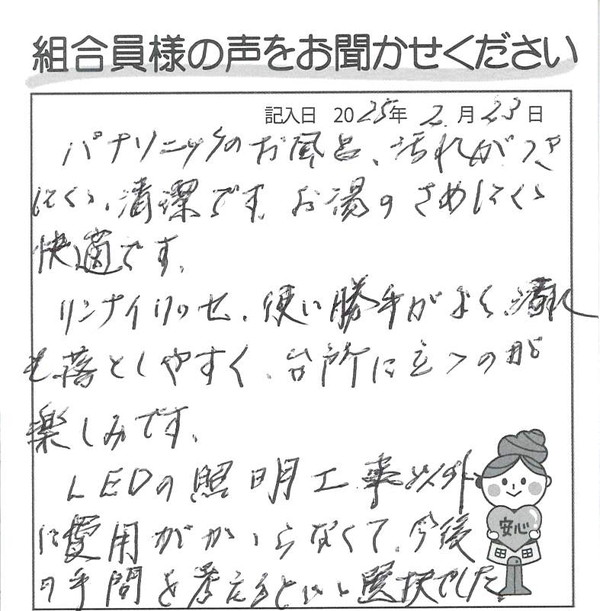 組合員様の声をお聞かせください
記入日 2025年 2月 23日
パナソニックのお風呂、汚れがつき
にくい、清潔です。お湯のさめにくく
快適です。
リンナイリッセ、使い勝手がよく、汚れ
も落としやすく、台所に立つのが
楽しみです。
LEDの照明工事以外
に費用がかからなくて、今後
の手間を考えるといい選択でした
安心